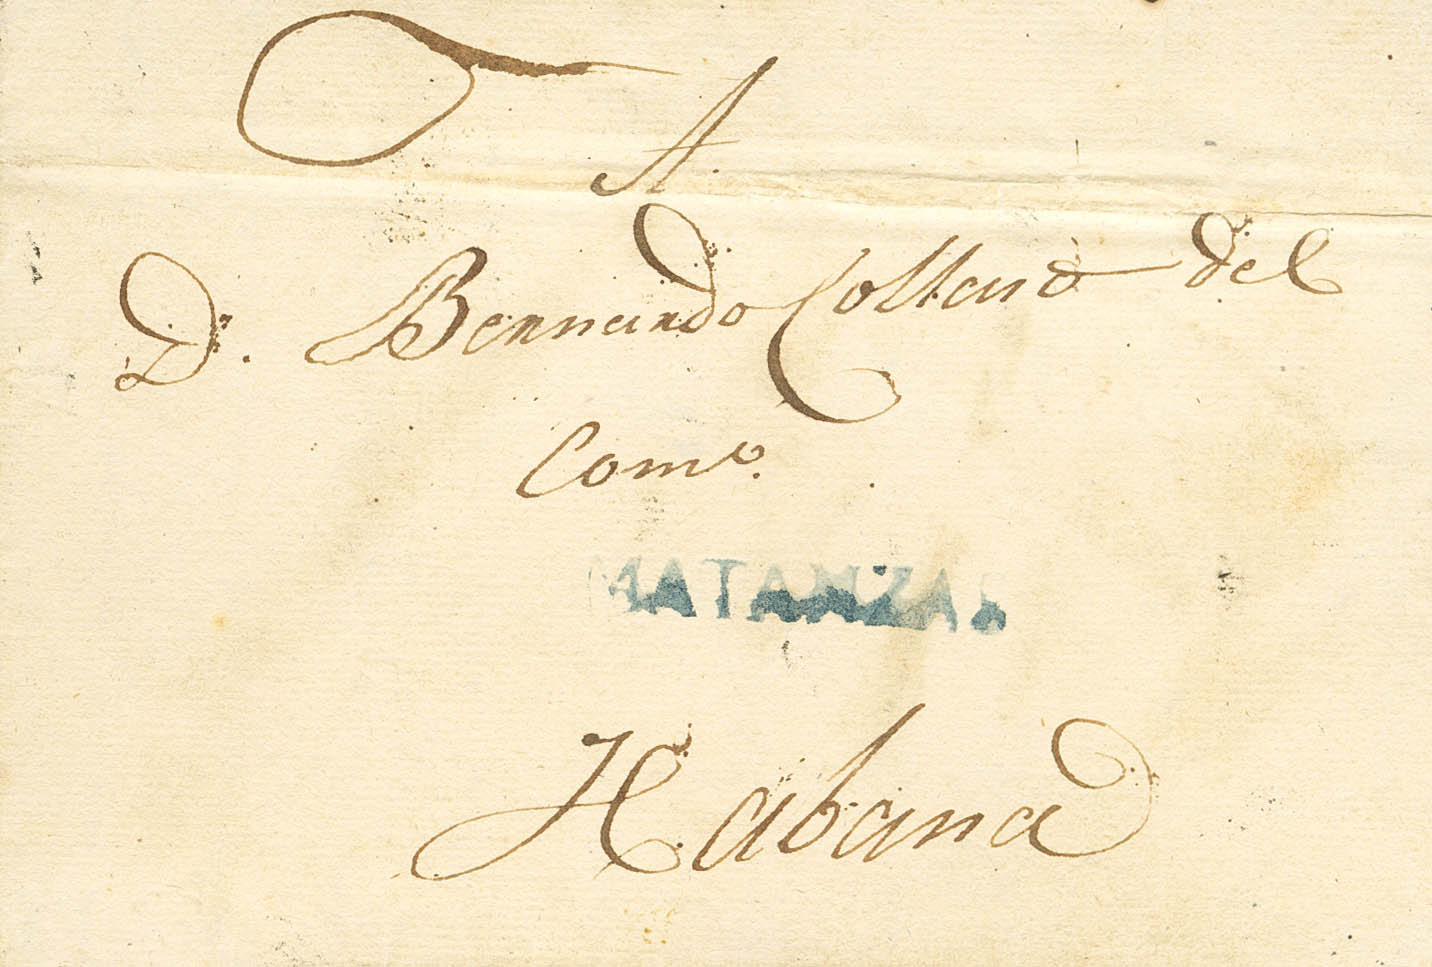 A.
D. Bernardo Collaso del
Como.
MATANZAS
Habana